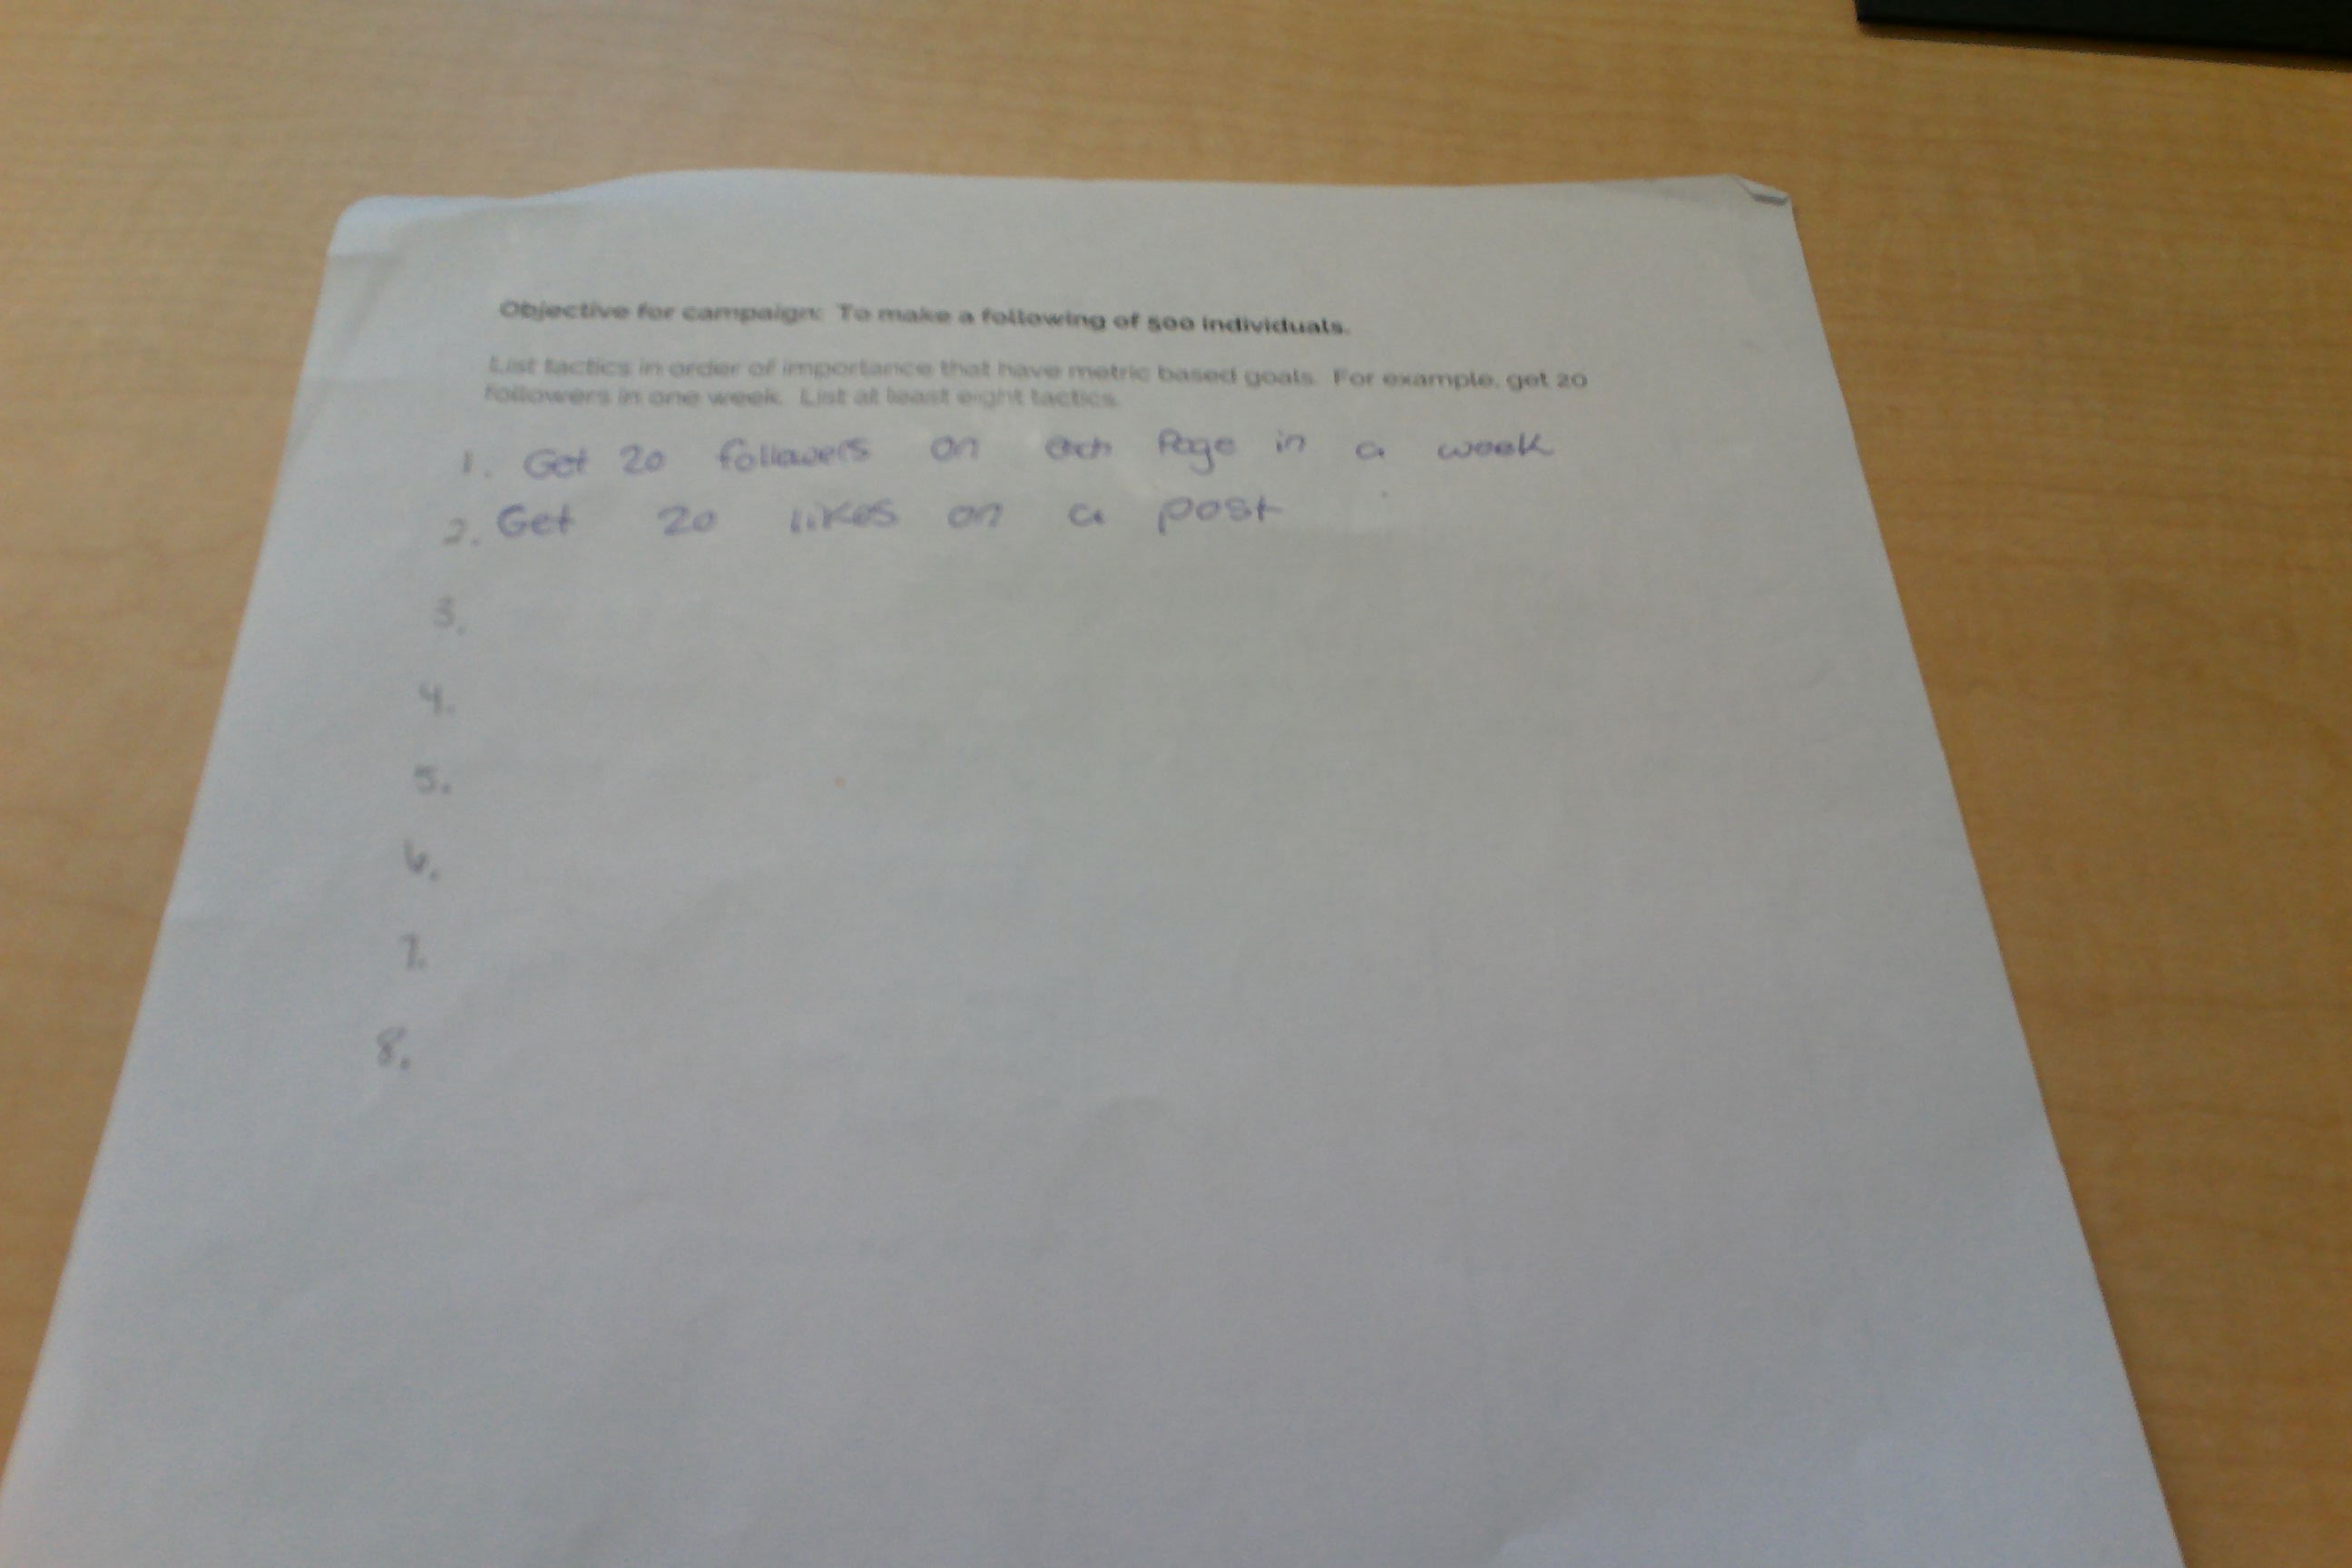 Objective for campaign: To make a following of 500 individuals.
List tactics in order of importance that have metric based goals. For example, get 20
followers in one week. List at least eight tactics.
1. Get 20 followers on each Page in a week
2. Get 20 likes on a post
3.
4.
5.
6.
7.
8.